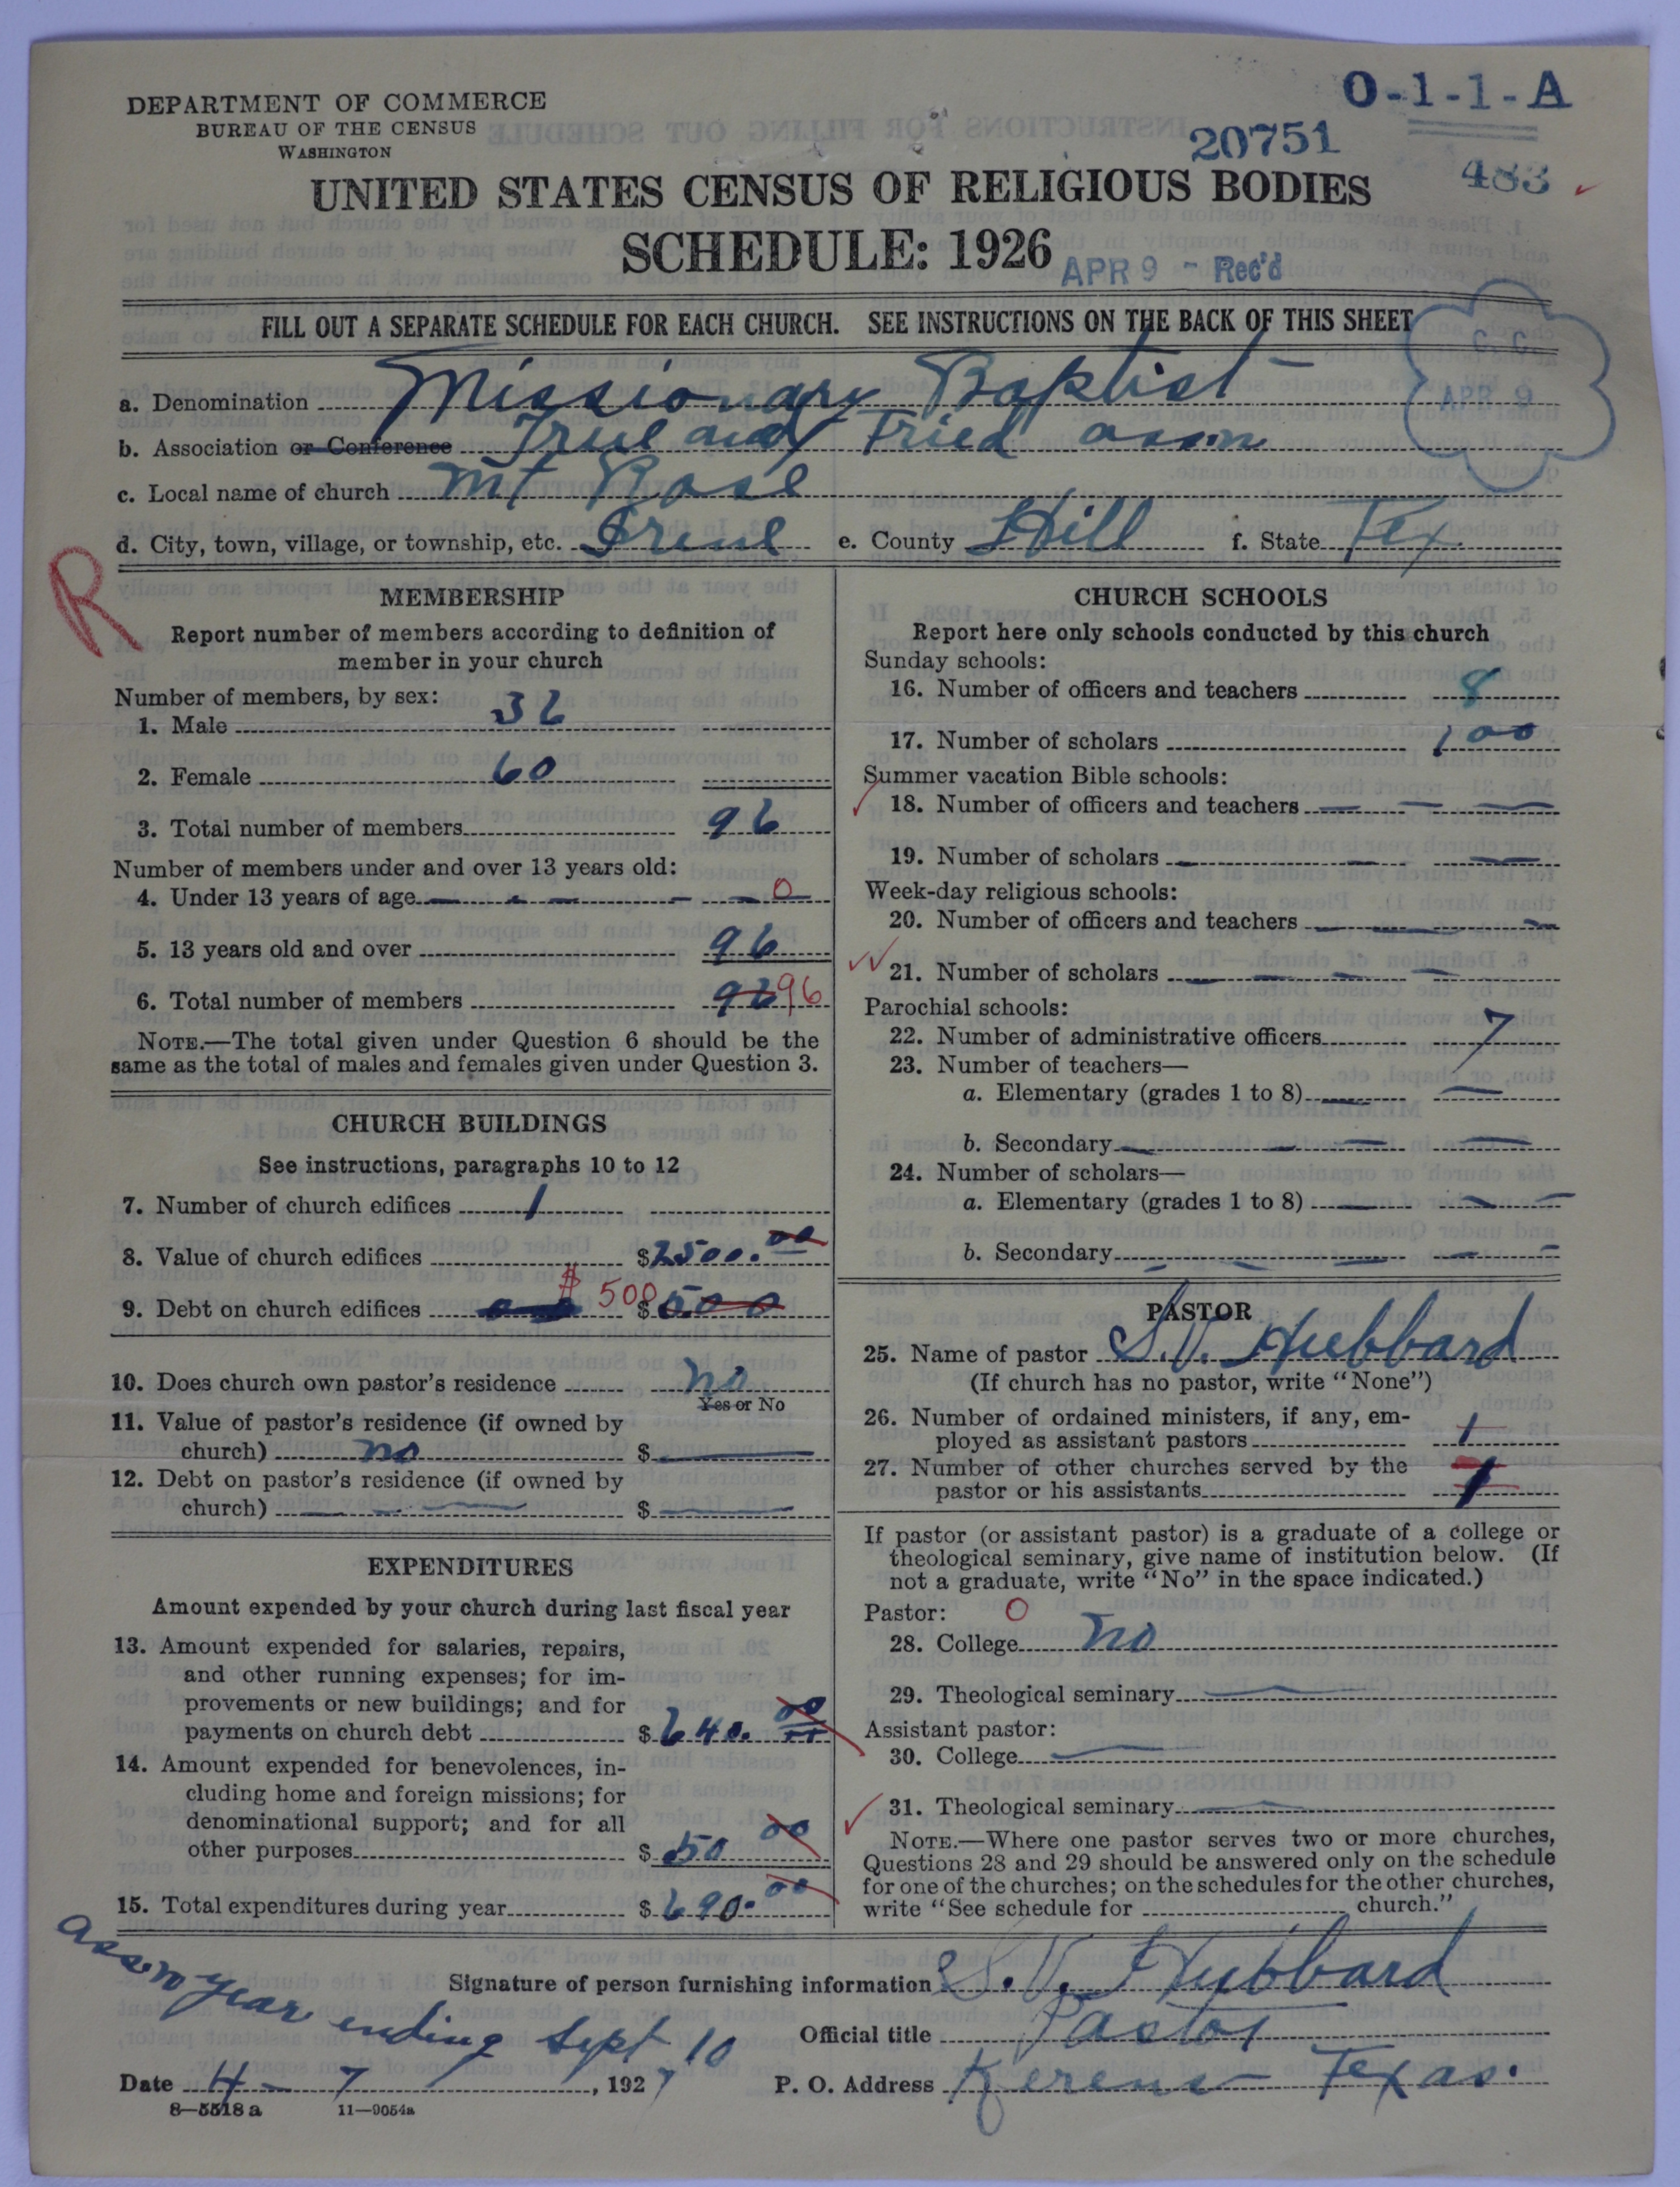 DEPARTMENT OF COMMERCE
BUREAU OF THE CENSUS
WASHINGTON
O-1-1-A
20751
483
UNITED STATES CENSUS OF RELIGIOUS BODIES
SCHEDULE: 1926
APR 9 - Rec'd
FILL OUT A SEPARATE SCHEDULE FOR EACH CHURCH. SEE INSTRUCTIONS ON THE BACK OF THIS SHEET
C. C.
APR 9
a. Denomination Missionary Baptist
b. Association or Conference True and Tried assn
c. Local name of church Mt Rose
d. City, town, village, or township, etc. Irene e. County Hill f. State Tex
R
MEMBERSHIP
Report number of members according to definition of
member in your church
Number of members, by sex:
1. Male 36
2. Female 60
3. Total number of members 96
Number of members under and over 13 years old:
4. Under 13 years of age 0
5. 13 years old and over 96
6. Total number of members 96 96
NOTE.—The total given under Question 6 should be the
same as the total of males and females given under Question 3.
CHURCH BUILDINGS
See instructions, paragraphs 10 to 12
7. Number of church edifices 1
8. Value of church edifices $2500.00
9. Debt on church edifices $500 $500
10. Does church own pastor's residence no
Yes or No
11. Value of pastor's residence (if owned by
church) no $
12. Debt on pastor's residence (if owned by
church) $
EXPENDITURES
Amount expended by your church during last fiscal year
13. Amount expended for salaries, repairs,
and other running expenses; for im-
provements or new buildings; and for
payments on church debt $640.00
14. Amount expended for benevolences, in-
cluding home and foreign missions; for
denominational support; and for all
other purposes $50 00
15. Total expenditures during year $690.00
CHURCH SCHOOLS
Report here only schools conducted by this church
Sunday schools:
16. Number of officers and teachers 8
17. Number of scholars 100
Summer vacation Bible schools:
18. Number of officers and teachers
19. Number of scholars
Week-day religious schools:
20. Number of officers and teachers
21. Number of scholars
Parochial schools:
22. Number of administrative officers 7
23. Number of teachers—
a. Elementary (grades 1 to 8)
b. Secondary
24. Number of scholars—
a. Elementary (grades 1 to 8)
b. Secondary
PASTOR
25. Name of pastor S.V. Hubbard
(If church has no pastor, write "None")
26. Number of ordained ministers, if any, em-
ployed as assistant pastors 1
27. Number of other churches served by the
pastor or his assistants 1
If pastor (or assistant pastor) is a graduate of a college or
theological seminary, give name of institution below. (If
not a graduate, write "No" in the space indicated.)
Pastor: O
28. College no
29. Theological seminary
Assistant pastor:
30. College
31. Theological seminary
NOTE.—Where one pastor serves two or more churches,
Questions 28 and 29 should be answered only on the schedule
for one of the churches; on the schedules for the other churches,
write "See schedule for church."
assn year ending Sept 10
Signature of person furnishing information S.V. Hubbard
Official title Pastor
Date 4 - 7, 1927 P. O. Address Kerens Texas.
8—5518 a 11—9054a